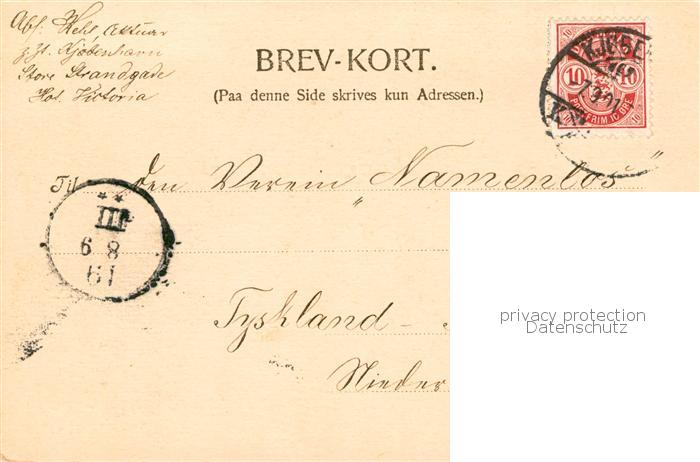 Abs: Kehl, Aktuar
z. Zt. Kjöbenhavn
Store Strandgade
Hot. Victoria
BREV-KORT.
(Paa denne Side skrives kun Adressen.)
KJØBE
10 10
POSTFRIM 10 ØRE
Til den Verein „Namenlos"
III
6 8
61
Tyskland -
Nieder
privacy protection
Datenschutz